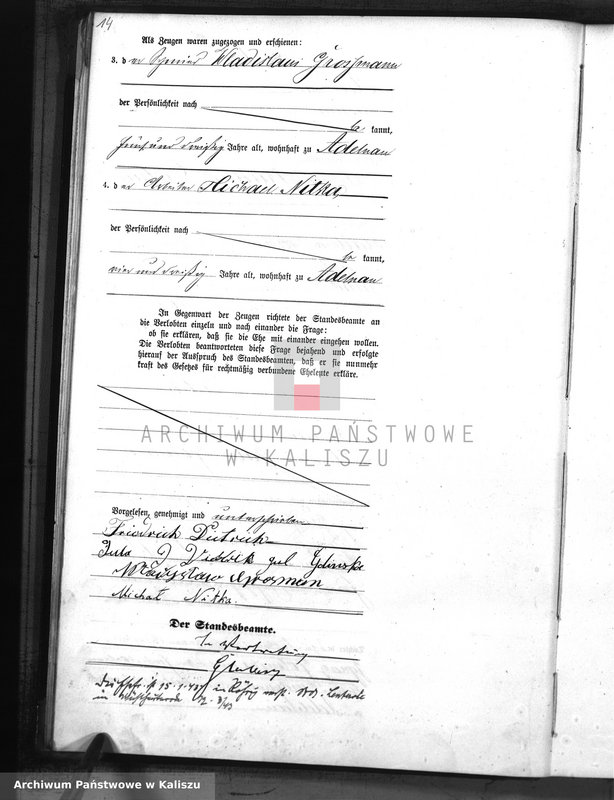 14
Als Zeugen waren zugezogen und erschienen:
3. d er Wladislaus Grossmann
der Persönlichkeit nach
be kannt,
fünf und dreißig Jahre alt, wohnhaft zu Adelnau
4. d er Arbeiter Michael Nitka
der Persönlichkeit nach
be kannt,
vier und dreißig Jahre alt, wohnhaft zu Adelnau
In Gegenwart der Zeugen richtete der Standesbeamte an
die Verlobten einzeln und nach einander die Frage:
ob sie erklären, daß sie die Ehe mit einander eingehen wollen.
Die Verlobten beantworteten diese Frage bejahend und erfolgte
hierauf der Ausspruch des Standesbeamten, daß er sie nunmehr
kraft des Gesetzes für rechtmäßig verbundene Eheleute erkläre.
ARCHIWUM PAŃSTWOWE
W KALISZU
Vorgelesen, genehmigt und unterschrieben
Friedrich Dietrich
Jula Dietrich geb
Władysław Grosman
Michał Nitka.
Der Standesbeamte.
In Vertretung
Archiwum Państwowe w Kaliszu